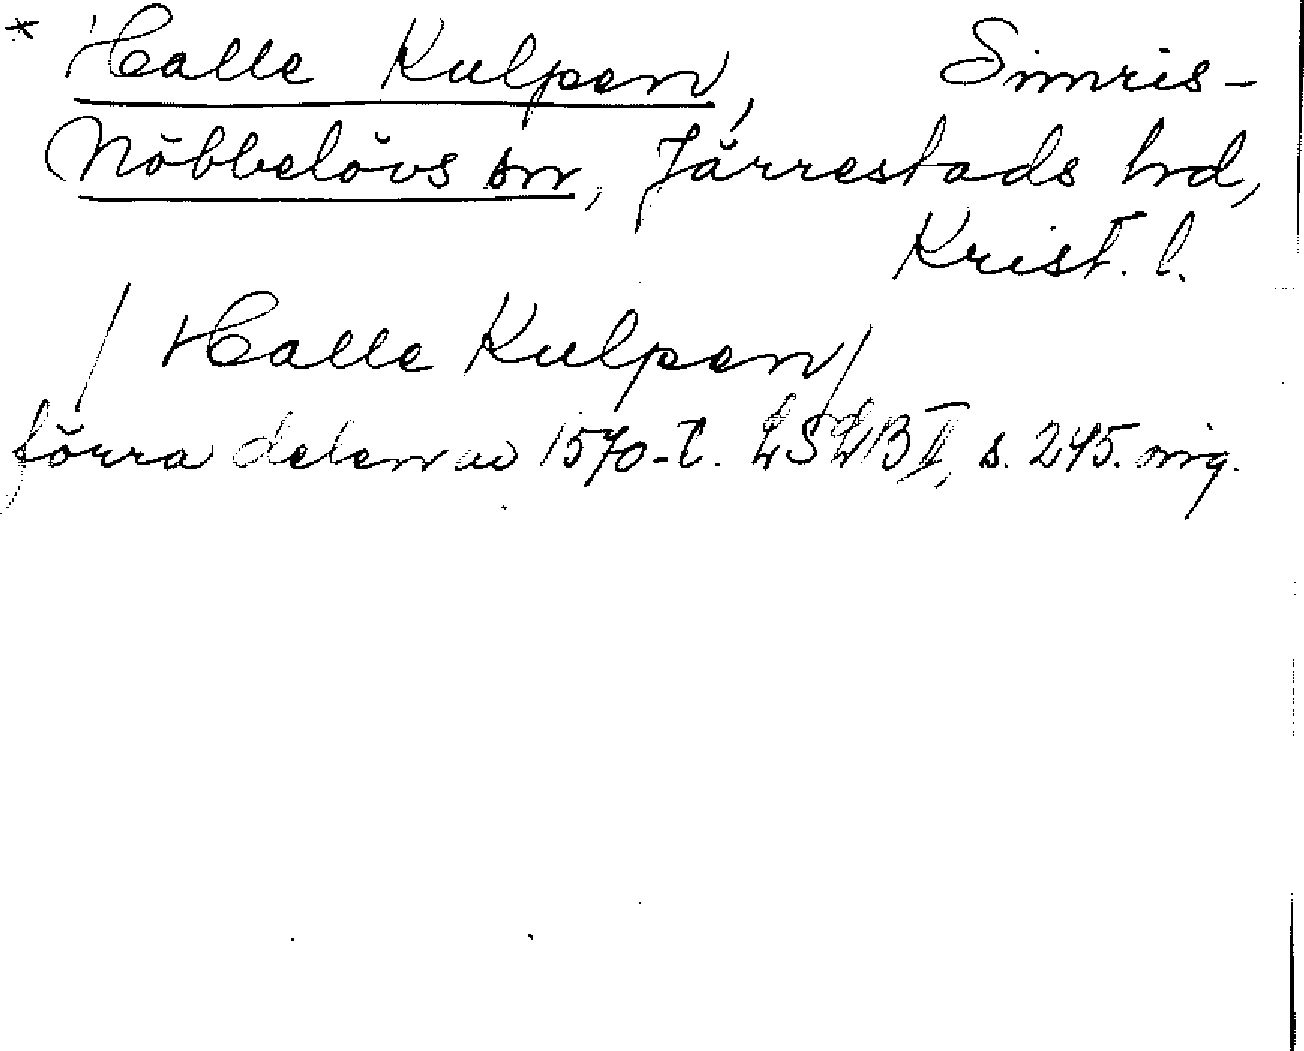 * Halle Kulpen, Simris-
Nöbbelövs sn, Järrestads hd,
Krist. l.
/ Halle Kulpen /
förra delen av 1570-t. LSLB II, s. 245. mg.